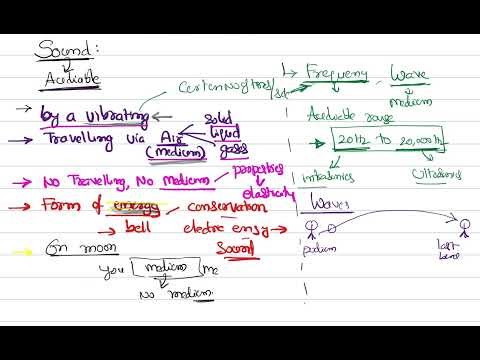 Sound:
Audiable
by a vibrating
Travelling via Air
(medium)
solid
liquid
gases
No Travelling, No Medium
properties
elasticity
Form of energy
conservation
bell
electric energy
Sound
On moon
you medium me
No medium.
Frequency
Wave
medium
Audiable range
20Hz to 20,000Hz
infrasonics
Ultrasonics
Waves
podium
last
bench